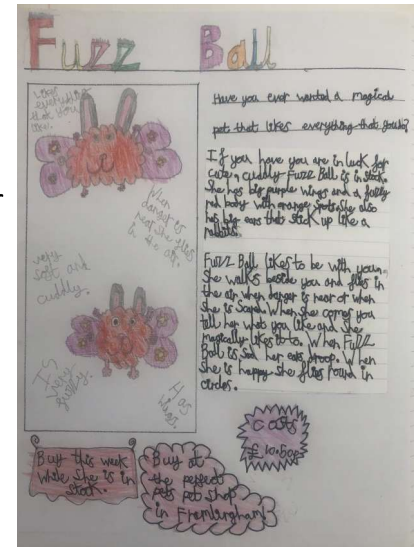 Fuzz Ball
Likes
everything
that you
like.
When
danger is
near she flies
in the air.
very
soft and
cuddly.
Is
very
Has
wings.
Have you ever wanted a magical
pet that likes everything that you do?
If you have you are in luck for
cute n cuddly Fuzz Ball is in stock.
She has big purple wings and a
red body with orange spots. She also
has big ears that stick up like a
rabbits.
Fuzz Ball likes to be with you
she walks beside you and flies in
the air when danger is near or when
she is When she comes you
tell her what you like and she
magically likes it to. When Fuzz
Ball is sad her ears droop. When
she is happy she flies round in
circles.
Costs
£10.50p
Buy this week
while she is in
stock.
Buy at
the perfect
pets pet shop
in Framlingham!